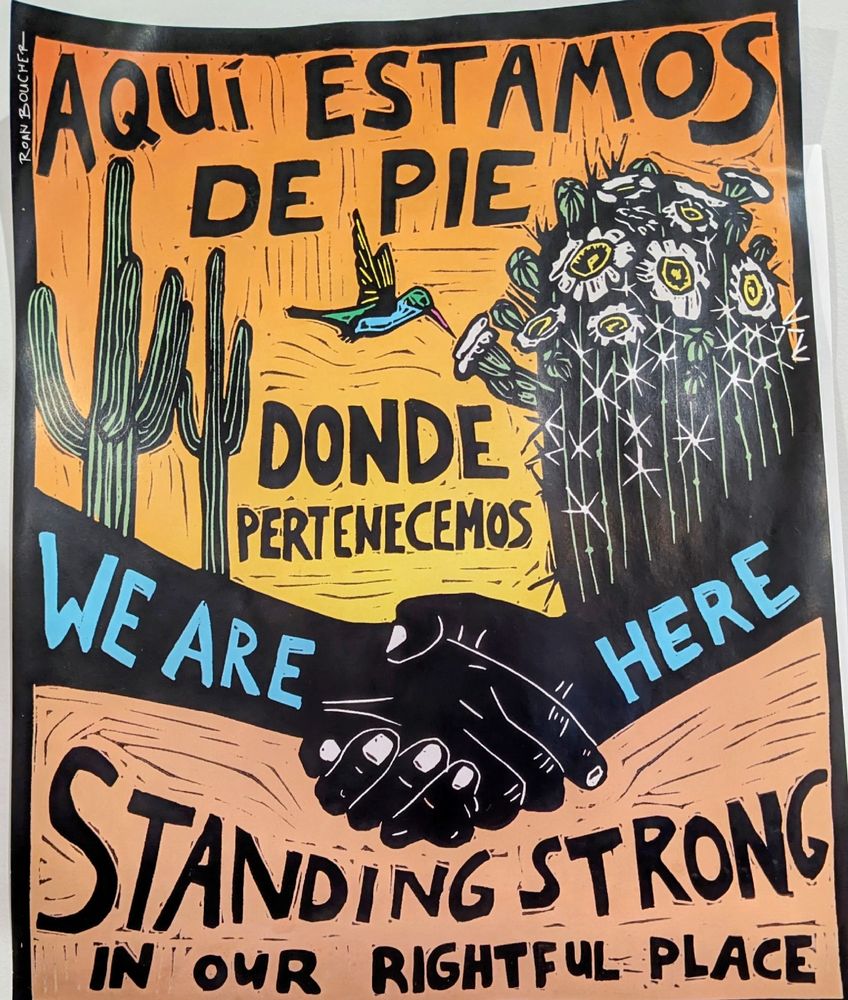 ROAN BOUCHER
AQUí ESTAMOS
DE PIE
DONDE
PERTENECEMOS
WE ARE HERE
STANDING STRONG
IN OUR RIGHTFUL PLACE